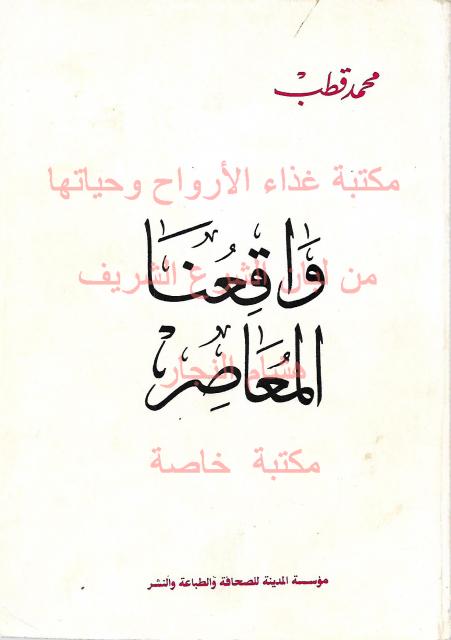 محمد قطب
مكتبة غذاء الأرواح وحياتها
وَاقِعُنَا
من لبان الشرع الشريف
المُعَاصِر
هشام النجار
مكتبة خاصة
مؤسسة المدينة للصحافة والطباعة والنشر